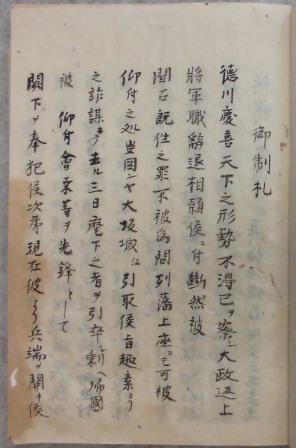 御制札
徳川慶喜天下之形勢不得已ヲ察シ大政返上
將軍職辞退相願候ニ付断然被
聞召既往之罪不被為問列藩上座ニモ可被
仰付之処豈図ンヤ大坂城江引取候旨趣素ヨリ
之詐謀ニテ去ル三日麾下之者ヲ引卒シ剰ヘ帰國
被 仰付會桒等ヲ先鋒として
闕下ヲ奉犯候次第現在彼より兵端ヲ開キ候